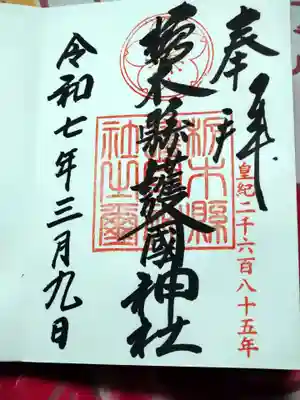 奉拝
皇紀二千六百八十五年
栃木縣護國神社
栃木縣
社之璽
令和七年三月九日